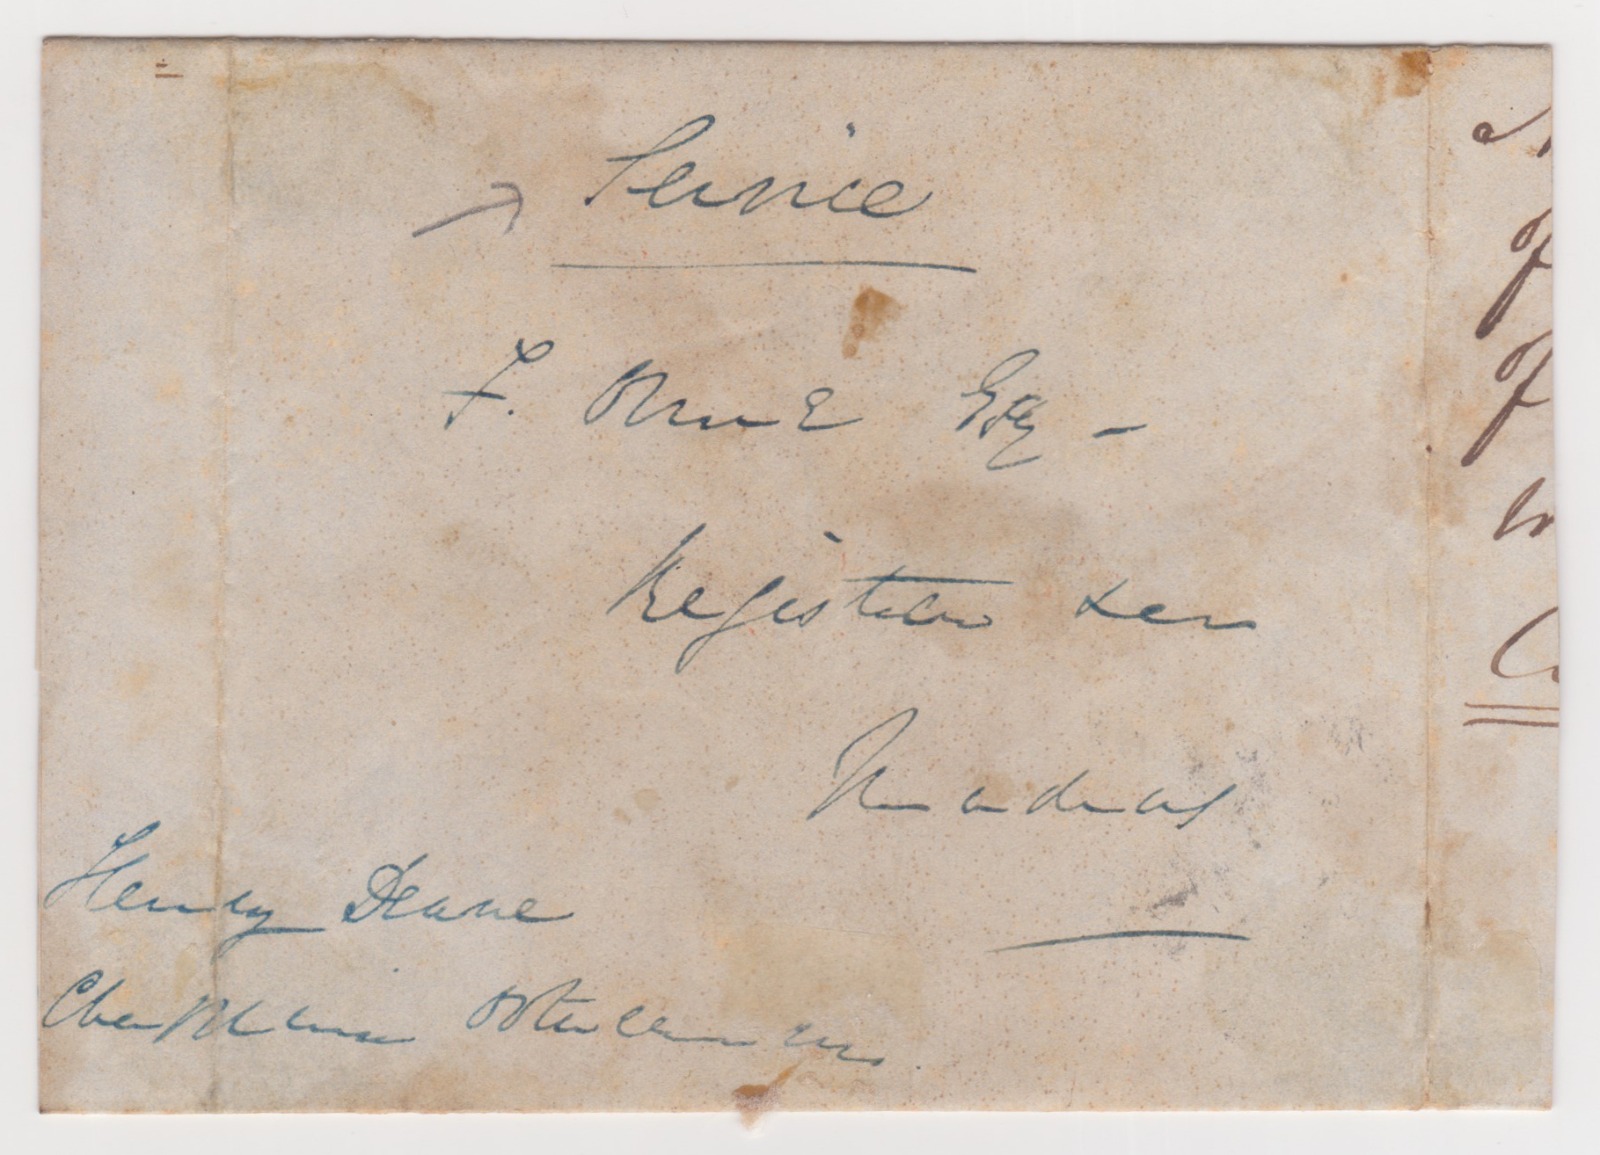 Service
F. Orme Esq -
Registrar
Madras
Henry Deane
Chaplain Ootacamund